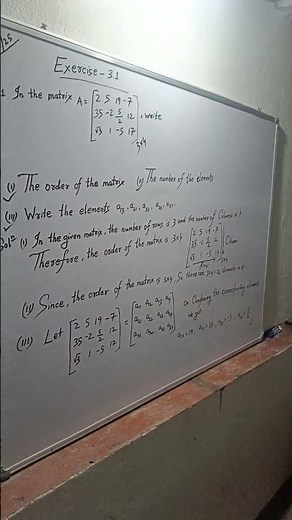 /25
Exercise - 3.1
1 In the matrix A = [2 5 19 -7
35 -2 5/2 12
√3 1 -5 17] , write
3x4
(i) The order of the matrix (ii) The number of the elements
(iii) Write the elements a13, a21, a33, a24, a23.
Sol^n (i) In the given matrix, the number of rows is 3 and the number of Column is 4
Therefore, the order of the matrix is 3x4
[2 5 19 -7
35 -2 5/2 12
√3 1 -5 17] Column
Row
(ii) Since, the order of the matrix is 3x4, So there are 3x4=12 elements in it
(iii) Let [2 5 19 -7
35 -2 5/2 12
√3 1 -5 17] =
On Comparing the corresponding elements
we get
a13 = 19,